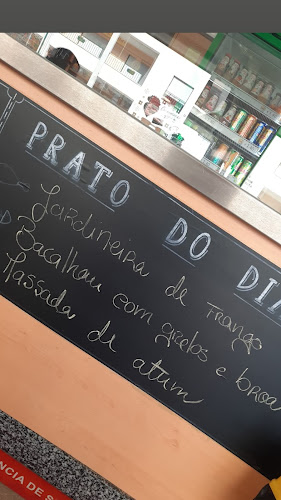 PRATO DO DIA
Jardineira de Frango
Bacalhau com grelos e broa
Massada de atum
NCIA DE S